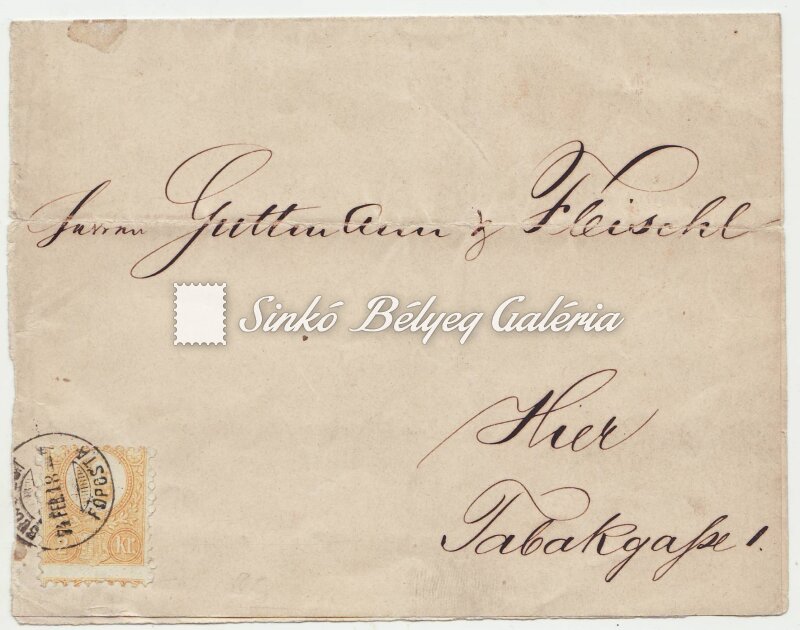 Herren Guttmann & Fleischl
Sinkó Bélyeg Galéria
Hier
Tabakgaße 1.
FŐPOSTA
74 FEB. 18
Kr.